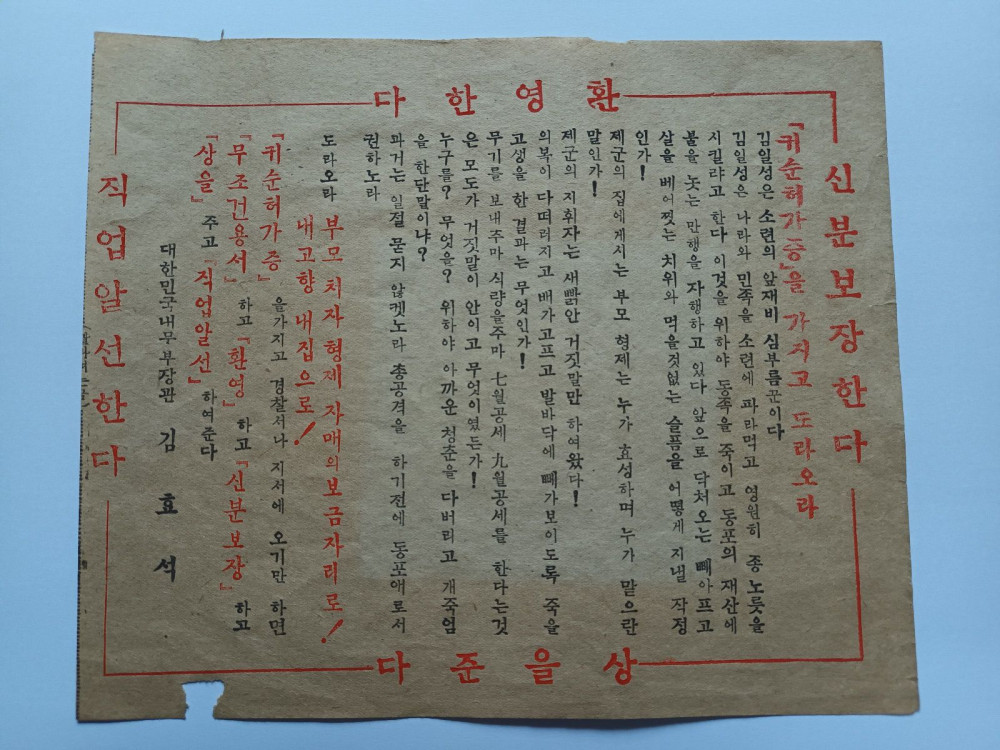 환영한다
신분보장한다
「귀순허가증」을 가지고 도라오라
김일성은 소련의 앞재비 심부름꾼이다
김일성은 나라와 민족을 소련에 파라먹고 영원히 종 노릇을
시킬랴고 한다 이것을 위하야 동족을 죽이고 동포의 재산에
불을 놋는 만행을 자행하고 있다 앞으로 닥처오는 뼈아프고
살을 베어찟는 치위와 먹을것없는 슬픔을 어떻게 지낼 작정
인가!
제군의 집에게시는 부모 형제는 누가 효성하며 누가 맡으란
말인가!
제군의 지휘자는 새빩안 거짓말만 하여왔다!
의복이 다떠러지고 배가고프고 발바닥에 뼈가보이도록 죽을
고생을 한 결과는 무엇인가!
무기를 보내주마 식량을주마 七월공세 九월공세를 한다는것
은 모도가 거짓말이 안이고 무엇이였든가!
누구를? 무엇을? 위하야 아까운 청춘을 다버리고 개죽엄
을 한단말이냐?
과거는 일절 묻지 않켓노라 총공격을 하기전에 동포애로서
권하노라
도라오라 부모 처자 형제 자매의보금자리로!
내고향 내집으로!
「귀순허가증」을가지고 경찰서나 지서에 오기만 하면
「무조건용서」하고「환영」하고「신분보장」하고
「상을」주고「직업알선」하여준다
대한민국내무부장관 김효석
직업알선한다
상을준다